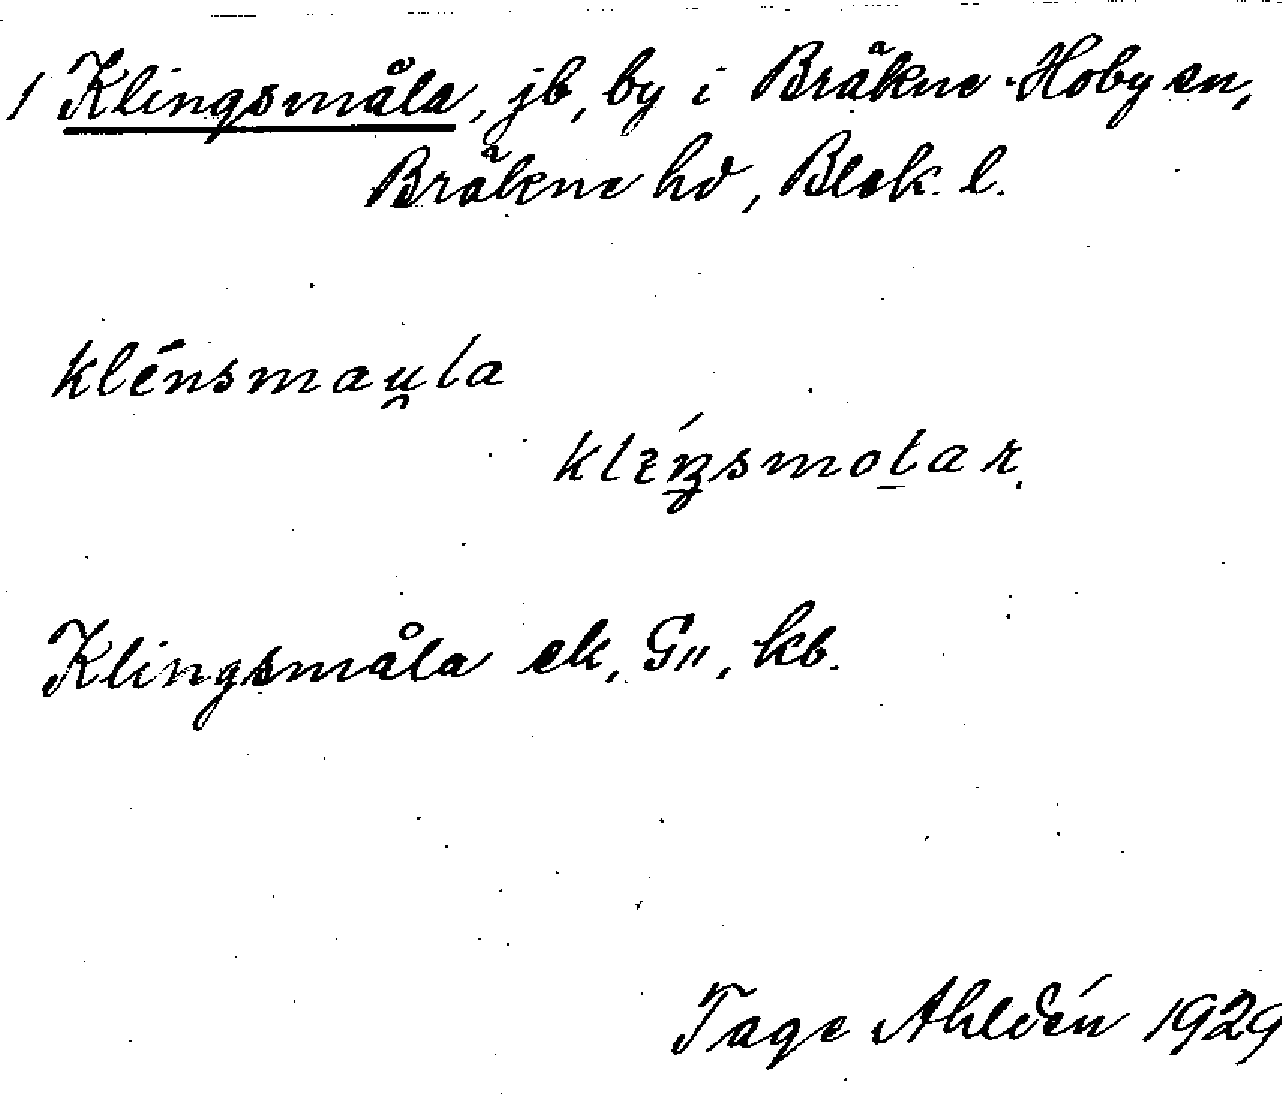 1 Klingsmåla, jb, by i Bräkne-Hoby sn,
Bräkne hd, Blek. l.
klénsmau̯la
klɛ́ŋsmolar.
Klingsmåla ek, G", kb.
Tage Ahldén 1929